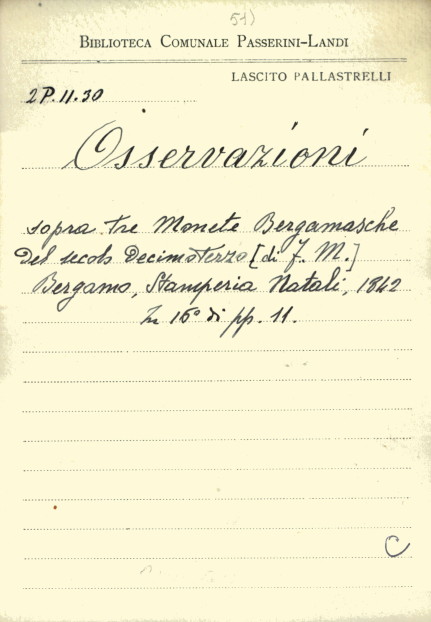 51)
BIBLIOTECA COMUNALE PASSERINI-LANDI
LASCITO PALLASTRELLI
2P.11.30
Osservazioni
sopra tre Monete Bergamasche
del secolo Decimoterzo [di J. M.]
Bergamo, Stamperia Natali, 1842
In 16° di pp. 11.
C